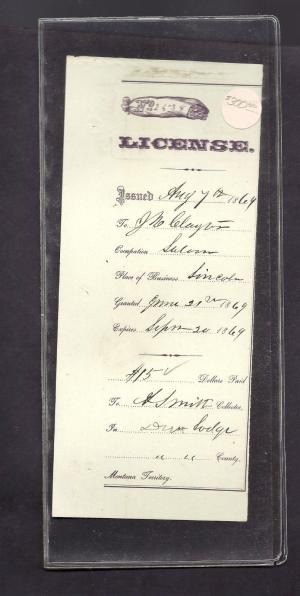 LICENSE.
Issued Aug 7th 1869
To J N Clayton
Occupation Saloon
Place of Business, Lincoln
Granted June 21st 1869
Expires Sept 20 1869
$15 Dollars Paid
To A Smith Collector,
In Deer Lodge
" " County.
Montana Territory.